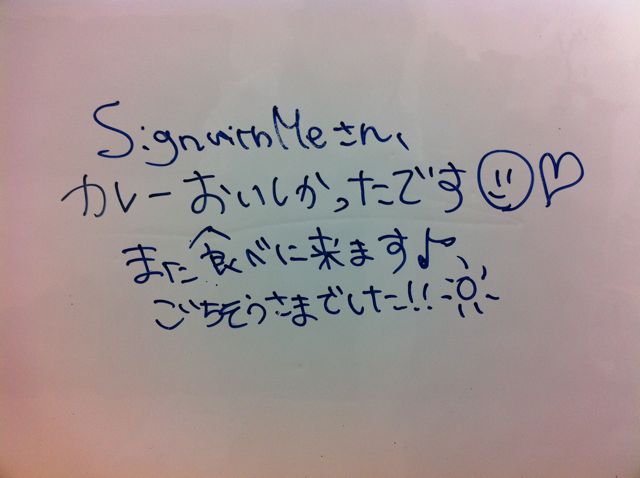 SignwithMeさん、
カレーおいしかったです
また食べに来ます♪
ごちそうさまでした!!